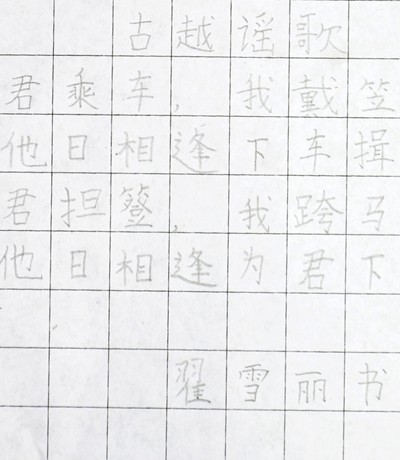 古越谣歌
君乘车，我戴笠
他日相逢下车揖
君担簦，我跨马
他日相逢为君下
翟雪丽书